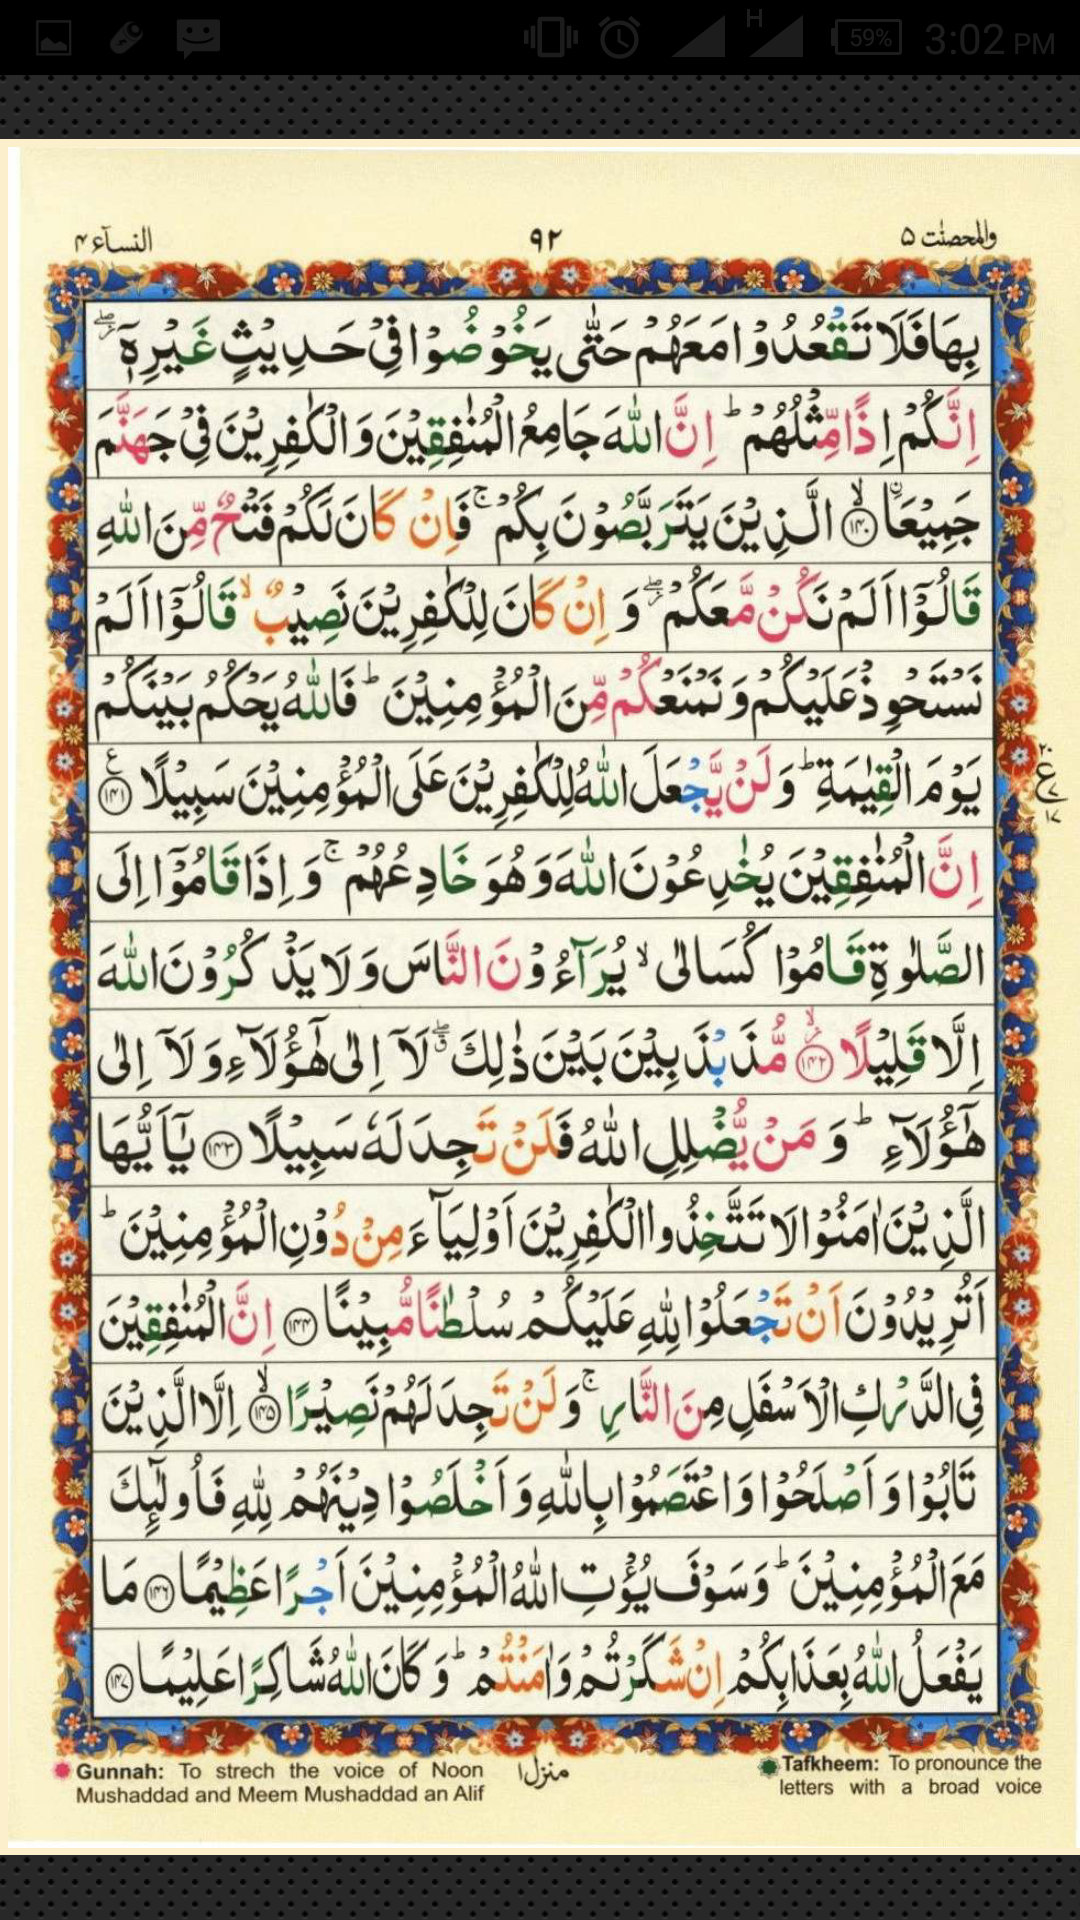 H
59%
3:02 PM
والمحصنٰت ۵
۹۲
النسآء ۴
بِهَا فَلَا تَقْعُدُوْا مَعَهُمْ حَتّٰى يَخُوْضُوْا فِيْ حَدِيْثٍ غَيْرِهٖٓ ۖ
اِنَّكُمْ اِذًا مِّثْلُهُمْ ؕ اِنَّ اللّٰهَ جَامِعُ الْمُنٰفِقِيْنَ وَالْكٰفِرِيْنَ فِيْ جَهَنَّمَ
جَمِيْعَا ۙ ﴿۱۴۰﴾ الَّذِيْنَ يَتَرَبَّصُوْنَ بِكُمْ ۚ فَاِنْ كَانَ لَكُمْ فَتْحٌ مِّنَ اللّٰهِ
قَالُوْٓا اَلَمْ نَكُنْ مَّعَكُمْ ۖ وَ اِنْ كَانَ لِلْكٰفِرِيْنَ نَصِيْبٌ ۙ قَالُوْٓا اَلَمْ
نَسْتَحْوِذْ عَلَيْكُمْ وَ نَمْنَعْكُمْ مِّنَ الْمُؤْمِنِيْنَ ؕ فَاللّٰهُ يَحْكُمُ بَيْنَكُمْ
يَوْمَ الْقِيٰمَةِ ؕ وَ لَنْ يَّجْعَلَ اللّٰهُ لِلْكٰفِرِيْنَ عَلَى الْمُؤْمِنِيْنَ سَبِيْلًا ﴿۱۴۱﴾
۲۰
ع
۷
۱۷
اِنَّ الْمُنٰفِقِيْنَ يُخٰدِعُوْنَ اللّٰهَ وَهُوَ خَادِعُهُمْ ۚ وَ اِذَا قَامُوْٓا اِلَى
الصَّلٰوةِ قَامُوْا كُسَالٰى ۙ يُرَآءُوْنَ النَّاسَ وَلَا يَذْكُرُوْنَ اللّٰهَ
اِلَّا قَلِيْلًا ﴿۱۴۲﴾ مُّذَبْذَبِيْنَ بَيْنَ ذٰلِكَ ۖ لَآ اِلٰى هٰٓؤُلَآءِ وَلَآ اِلٰى
هٰٓؤُلَآءِ ؕ وَ مَنْ يُّضْلِلِ اللّٰهُ فَلَنْ تَجِدَ لَهٗ سَبِيْلًا ﴿۱۴۳﴾ يٰٓاَيُّهَا
الَّذِيْنَ اٰمَنُوْا لَا تَتَّخِذُوا الْكٰفِرِيْنَ اَوْلِيَآءَ مِنْ دُوْنِ الْمُؤْمِنِيْنَ ؕ
اَتُرِيْدُوْنَ اَنْ تَجْعَلُوْا لِلّٰهِ عَلَيْكُمْ سُلْطٰنًا مُّبِيْنًا ﴿۱۴۴﴾ اِنَّ الْمُنٰفِقِيْنَ
فِي الدَّرْكِ الْاَسْفَلِ مِنَ النَّارِ ۚ وَ لَنْ تَجِدَ لَهُمْ نَصِيْرًا ۙ ﴿۱۴۵﴾ اِلَّا الَّذِيْنَ
تَابُوْا وَ اَصْلَحُوْا وَ اعْتَصَمُوْا بِاللّٰهِ وَ اَخْلَصُوْا دِيْنَهُمْ لِلّٰهِ فَاُولٰٓئِكَ
مَعَ الْمُؤْمِنِيْنَ ؕ وَسَوْفَ يُؤْتِ اللّٰهُ الْمُؤْمِنِيْنَ اَجْرًا عَظِيْمًا ﴿۱۴۶﴾ مَا
يَفْعَلُ اللّٰهُ بِعَذَابِكُمْ اِنْ شَكَرْتُمْ وَاٰمَنْتُمْ ؕ وَ كَانَ اللّٰهُ شَاكِرًا عَلِيْمًا ﴿۱۴۷﴾
Gunnah: To strech the voice of Noon
Mushaddad and Meem Mushaddad an Alif
منزل ۱
Tafkheem: To pronounce the
letters with a broad voice